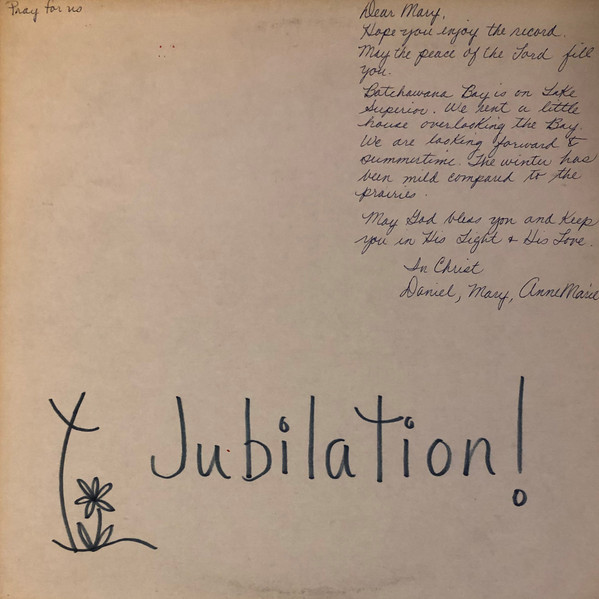 Pray for us
Dear Mary,
Hope you enjoy the record.
May the peace of the Lord fill
you.
Batchawana Bay is on Lake
Superior. We rent a little
house overlooking the Bay.
We are looking forward to
summertime. The winter has
been mild compared to the
prairies.
May God bless you and keep
you in His Light + His Love.
In Christ
Daniel, Mary, AnneMarie
Jubilation!